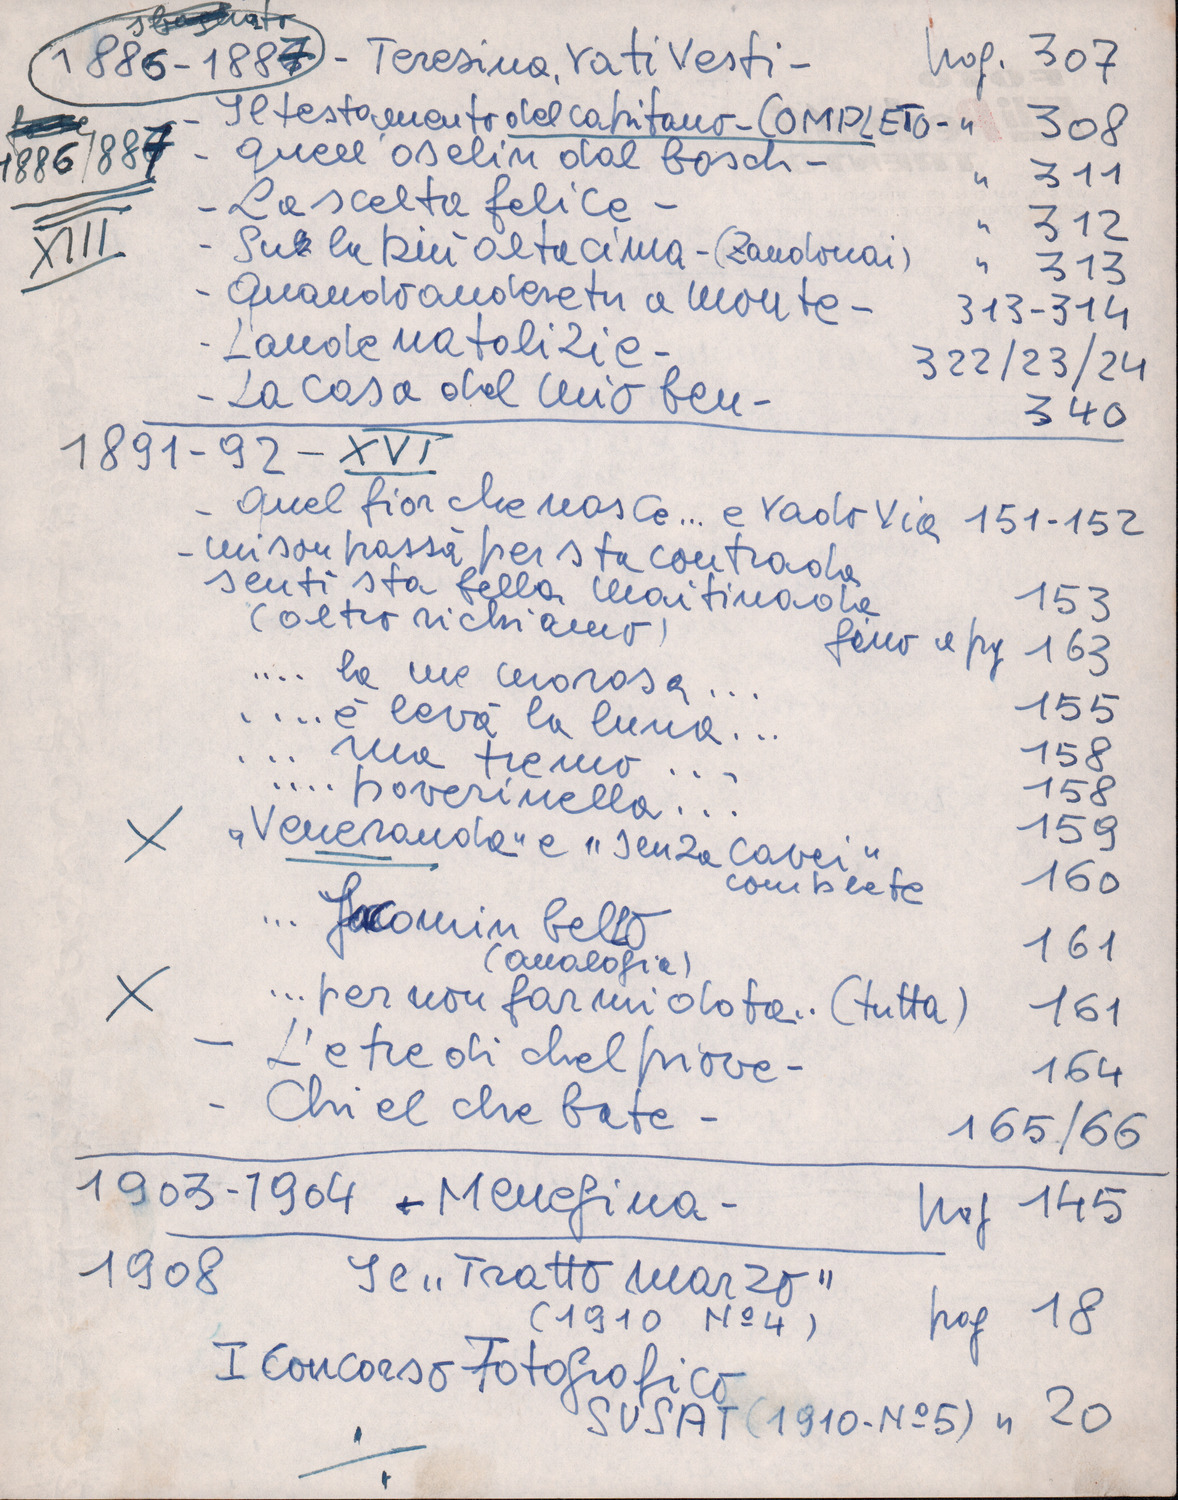 sbagliato
1886-1887 - Teresina, vati vesti - pag. 307
- Il testamento del capitano - COMPLETO - " 308
1886/887
- Quell'oselin dal bosch - " 311
- La scelta felice - " 312
XIII
- Sula più alta cima - (Zandonai) " 313
- Quando anderetu a monte - 313-314
- Laude natalizie - 322/23/24
- La casa del mio ben - 340
1891-92 - XVI
- Quel fior che nasce... e vado via 151-152
- mi son passà per sta contrada
senti sta bella maitinada 153
(altro richiamo) fino a pg 163
.... la me morosa... 155
....è levà la luna... 158
... ma tremo ... 158
.... poverinella... 159
X "Veneranda" e "senza cavei" 160
complete
... Jacomin bello 161
(analogia)
X ...per non farmi dota.. (tutta) 161
- L'e tre dì chel piove - 164
- Chi el che bate - 165/66
1903-1904 - Menegina - pag 145
1908 Ie "Tratto marzo" pag 18
(1910 Nº4)
I Concorso Fotografico
SUSAT (1910-Nº5) " 20